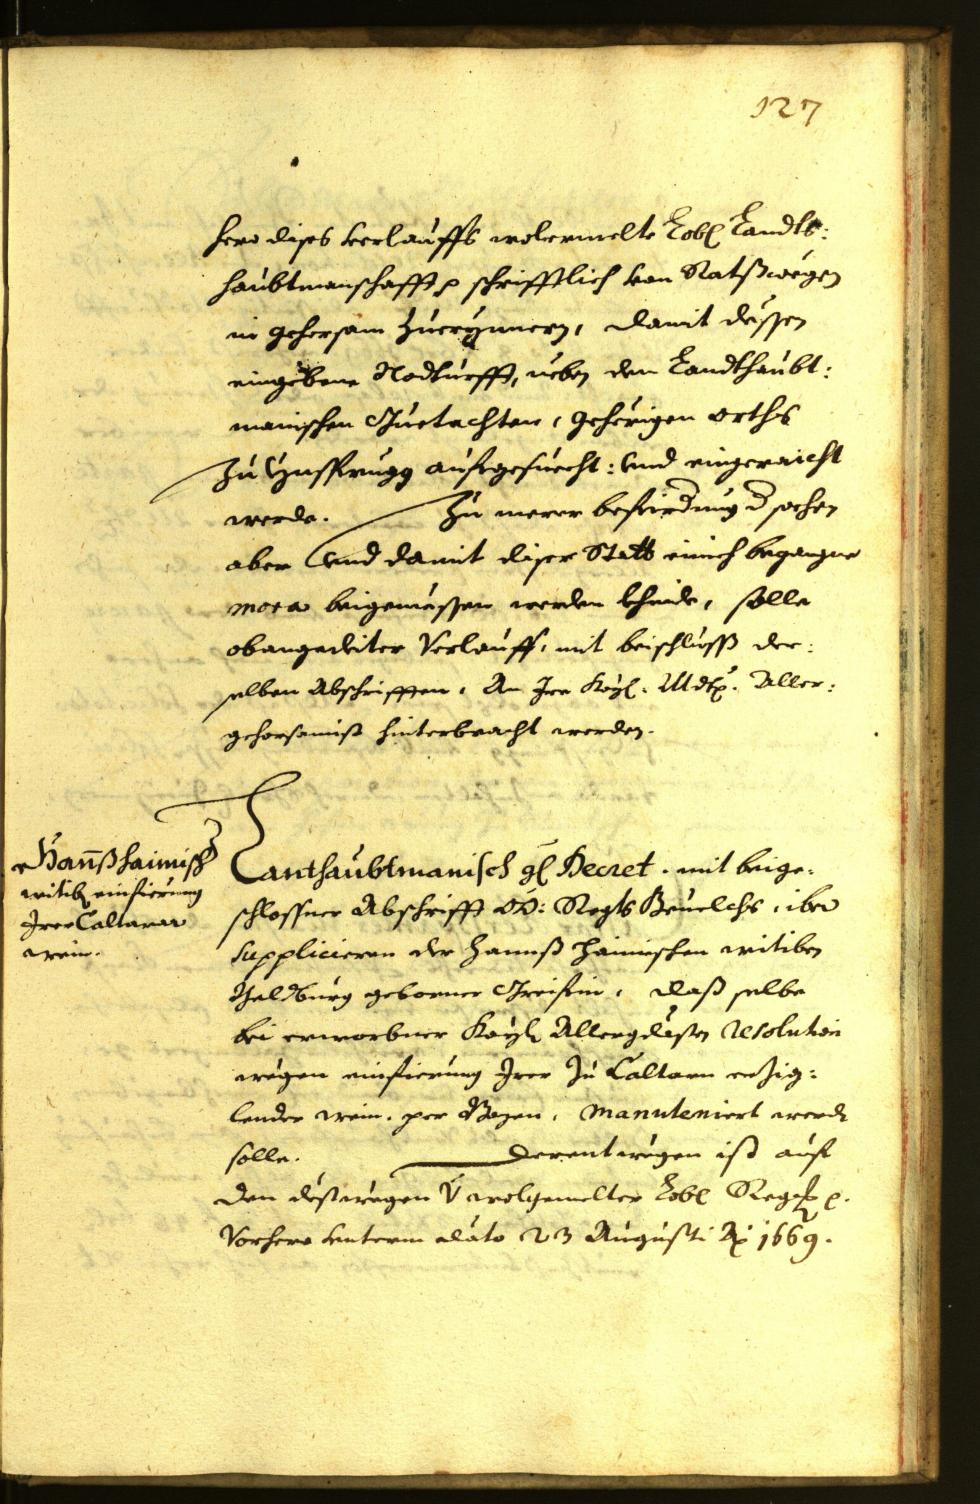 127
hero dises verlauffs wolermelte Lobl Landts:
haubtmanschafft p schrifftlich von Ratswegen
in gehorsam zuerynnern, damit dessen
eingebene Nodturfft, neben den Landthaubt:
manischen Guetachten, gehörigen orths
zu Ynsprugg aufgesuecht: vnd eingeraicht
werde. Zu merer befürdnung d sachen
aber vnd damit diser Statt einich begangne
mora beigemessen werden khinde, solle
obangedeiter Verlauff, mit beischlusß der:
selben Abschrifften, An Ire Kayl. Mdt p. Aller:
gehorsamist hinterbracht werden.
Hannßhaimisch
witib einfierung
Irer Caltarer
wein.
Lanthaubtmanisch gl Decret. mit beige:
schlossner Abschrifft OÖ: Regts Beuelchs, iber
supplicieren der Hannß Haimischen witiben
Waldburg geborner Greifin, dass selbe
bei erworbner Kayl Allergdisten resolution
wegen einfierung Irer zu Caltarn erzig:
lender wein. per Bozen, manuteniert werdn
solle. Derentwegen ist auf
den destwegen V wolgemelter Lobl Regg p.
Vorhero unterm dato 23 Augusti Ao 1669.